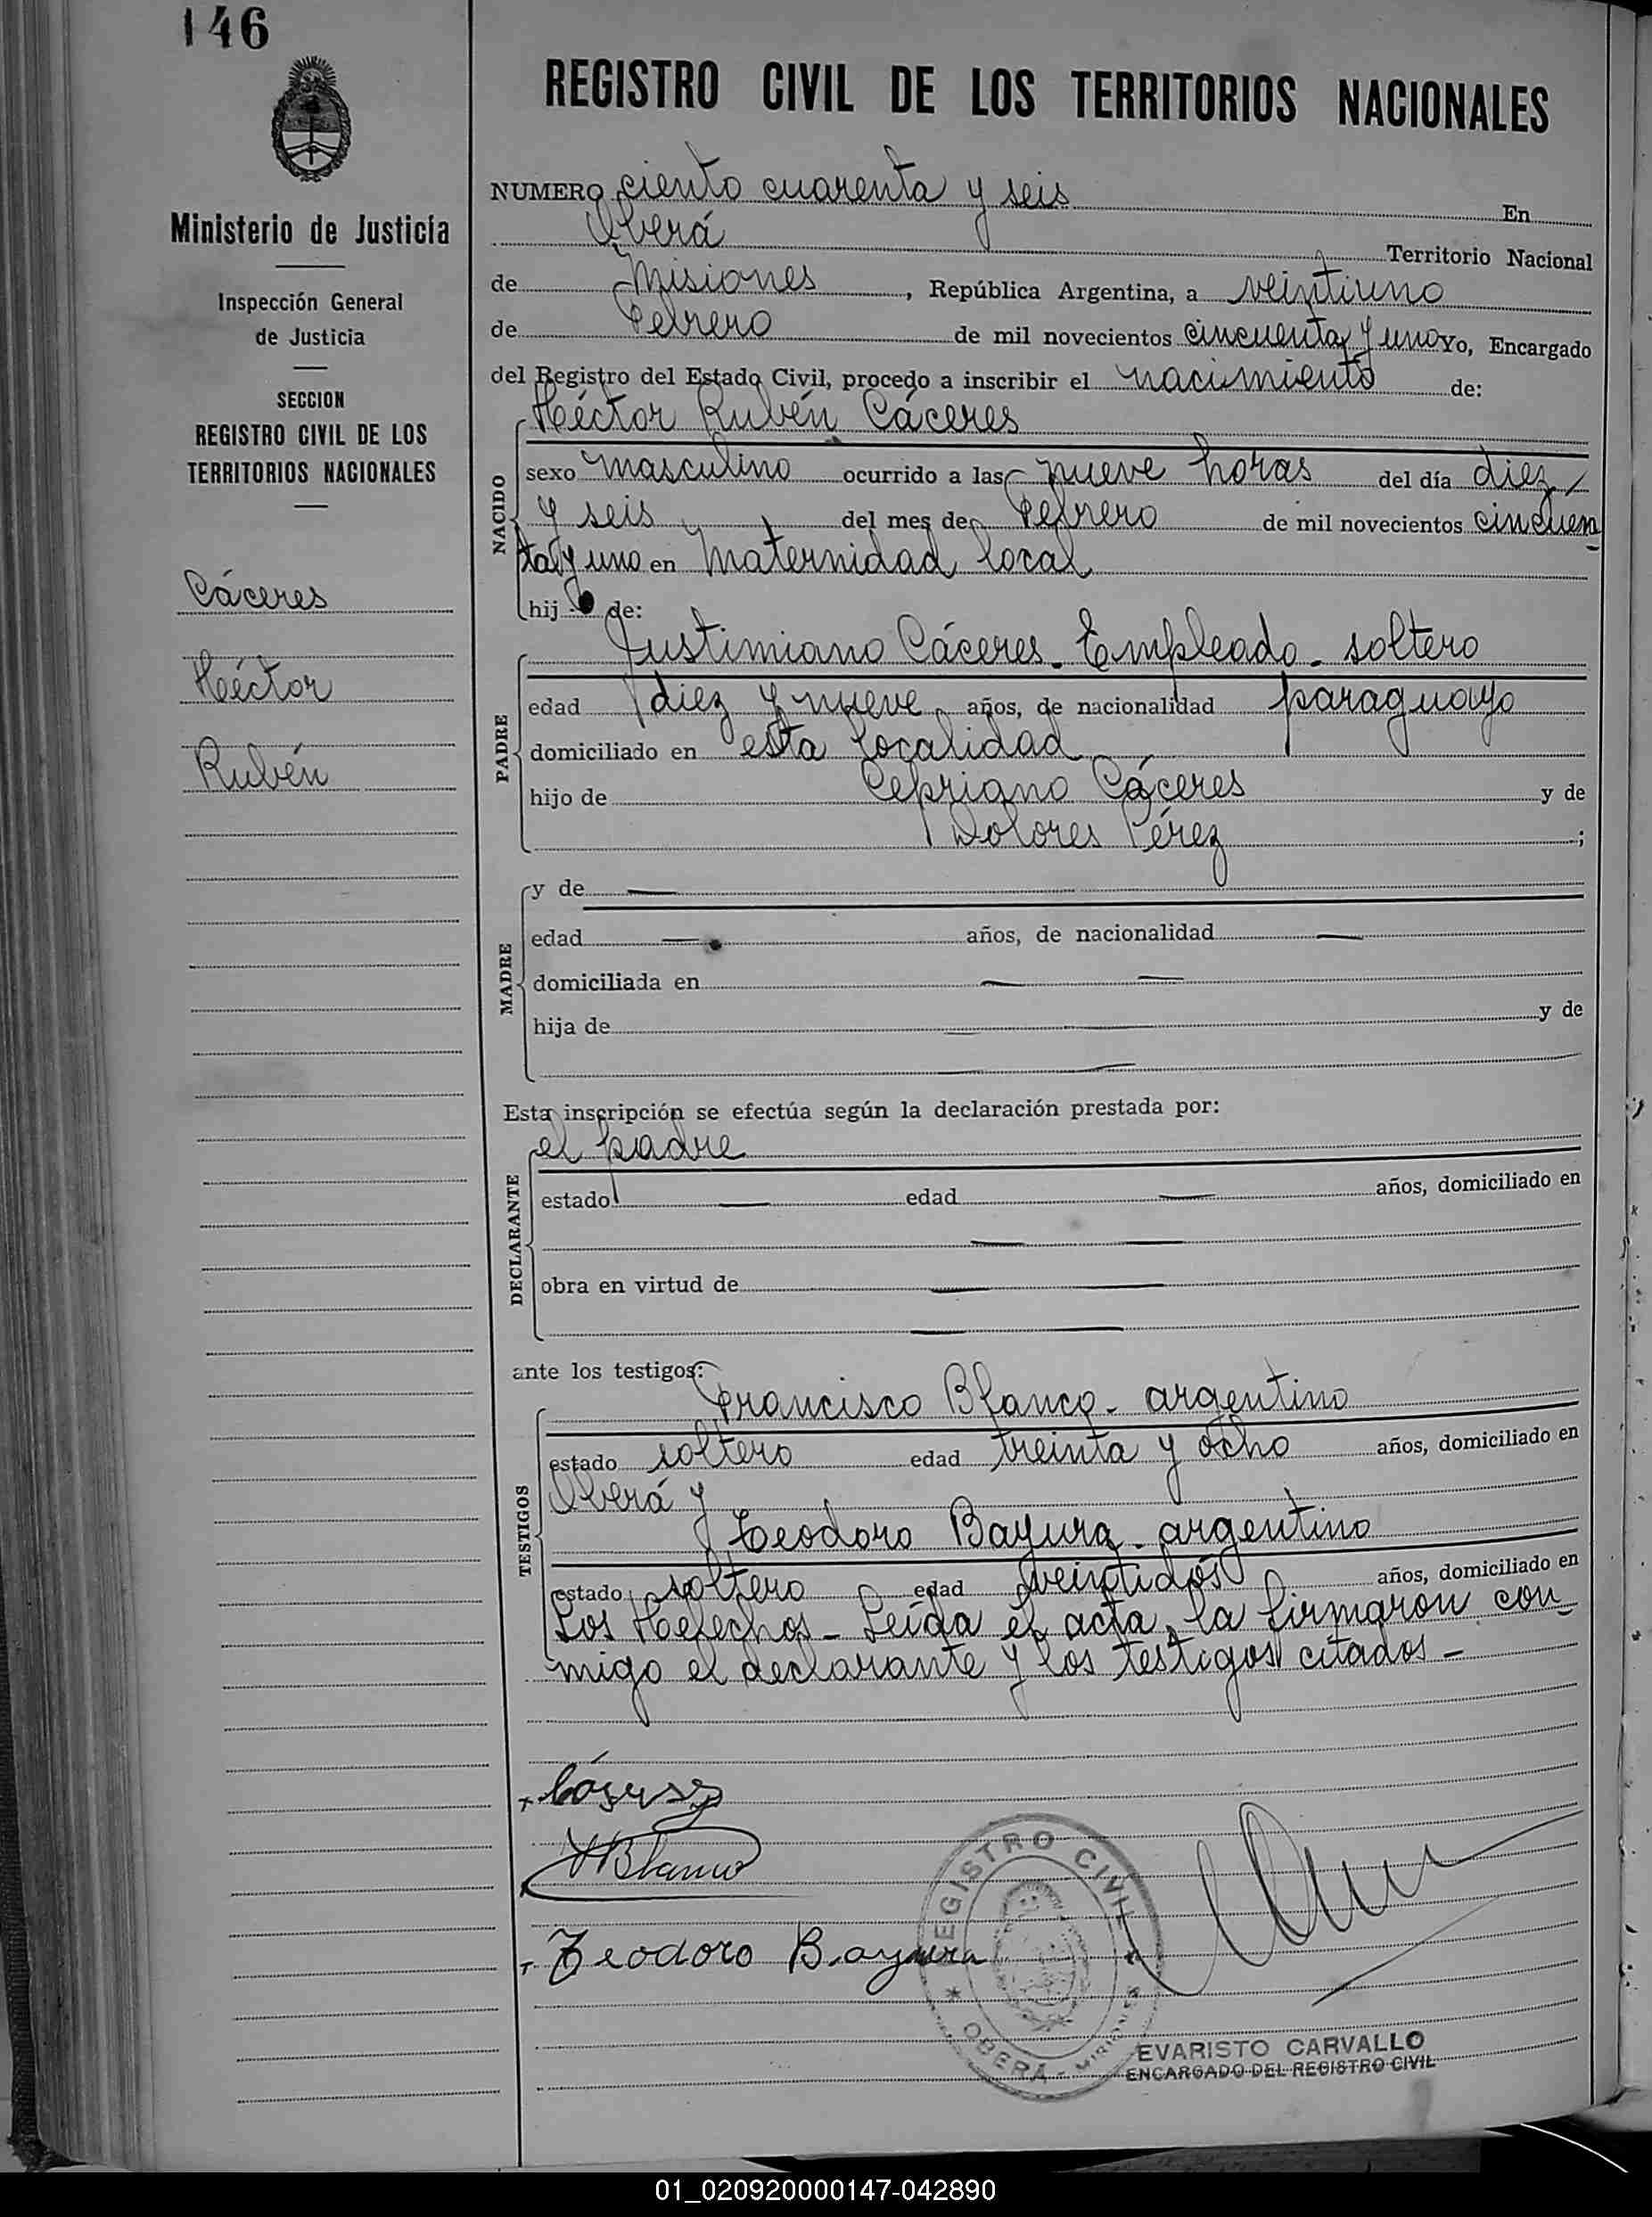 146
REGISTRO CIVIL DE LOS TERRITORIOS NACIONALES
Ministerio de Justicia
Inspección General
de Justicia
SECCION
REGISTRO CIVIL DE LOS
TERRITORIOS NACIONALES
Cáceres
Héctor
Rubén
NUMERO ciento cuarenta y seis En
Oberá Territorio Nacional
de Misiones, República Argentina, a veintiuno
de Febrero de mil novecientos cincuenta y uno Yo, Encargado
del Registro del Estado Civil, procedo a inscribir el nacimiento de:
NACIDO
Héctor Rubén Cáceres
sexo masculino ocurrido a las nueve horas del día diez
y seis del mes de Febrero de mil novecientos cincuen
ta y uno en Maternidad local
hij de:
PADRE
Justimiano Cáceres - Empleado - soltero
edad diez y nueve años, de nacionalidad paraguayo
domiciliado en esta localidad
hijo de Cepriano Cáceres y de
Dolores Pérez ;
MADRE
y de —
edad — años, de nacionalidad —
domiciliada en — —
hija de — y de
— —
Esta inscripción se efectúa según la declaración prestada por:
DECLARANTE
el padre
estado — edad — años, domiciliado en
— —
obra en virtud de — —
— —
ante los testigos:
TESTIGOS
Francisco Blanco - argentino
estado soltero edad treinta y ocho años, domiciliado en
Oberá y
Teodoro Bayura - argentino
estado soltero edad veintidos años, domiciliado en
Los Helechos - Leída el acta, la firmaron con
migo el declarante y los testigos citados -
Blanco
Teodoro Bayura
REGISTRO CIVIL
* OBERÁ - MISIONES *
EVARISTO CARVALLO
ENCARGADO DEL REGISTRO CIVIL
01_020920000147-042890